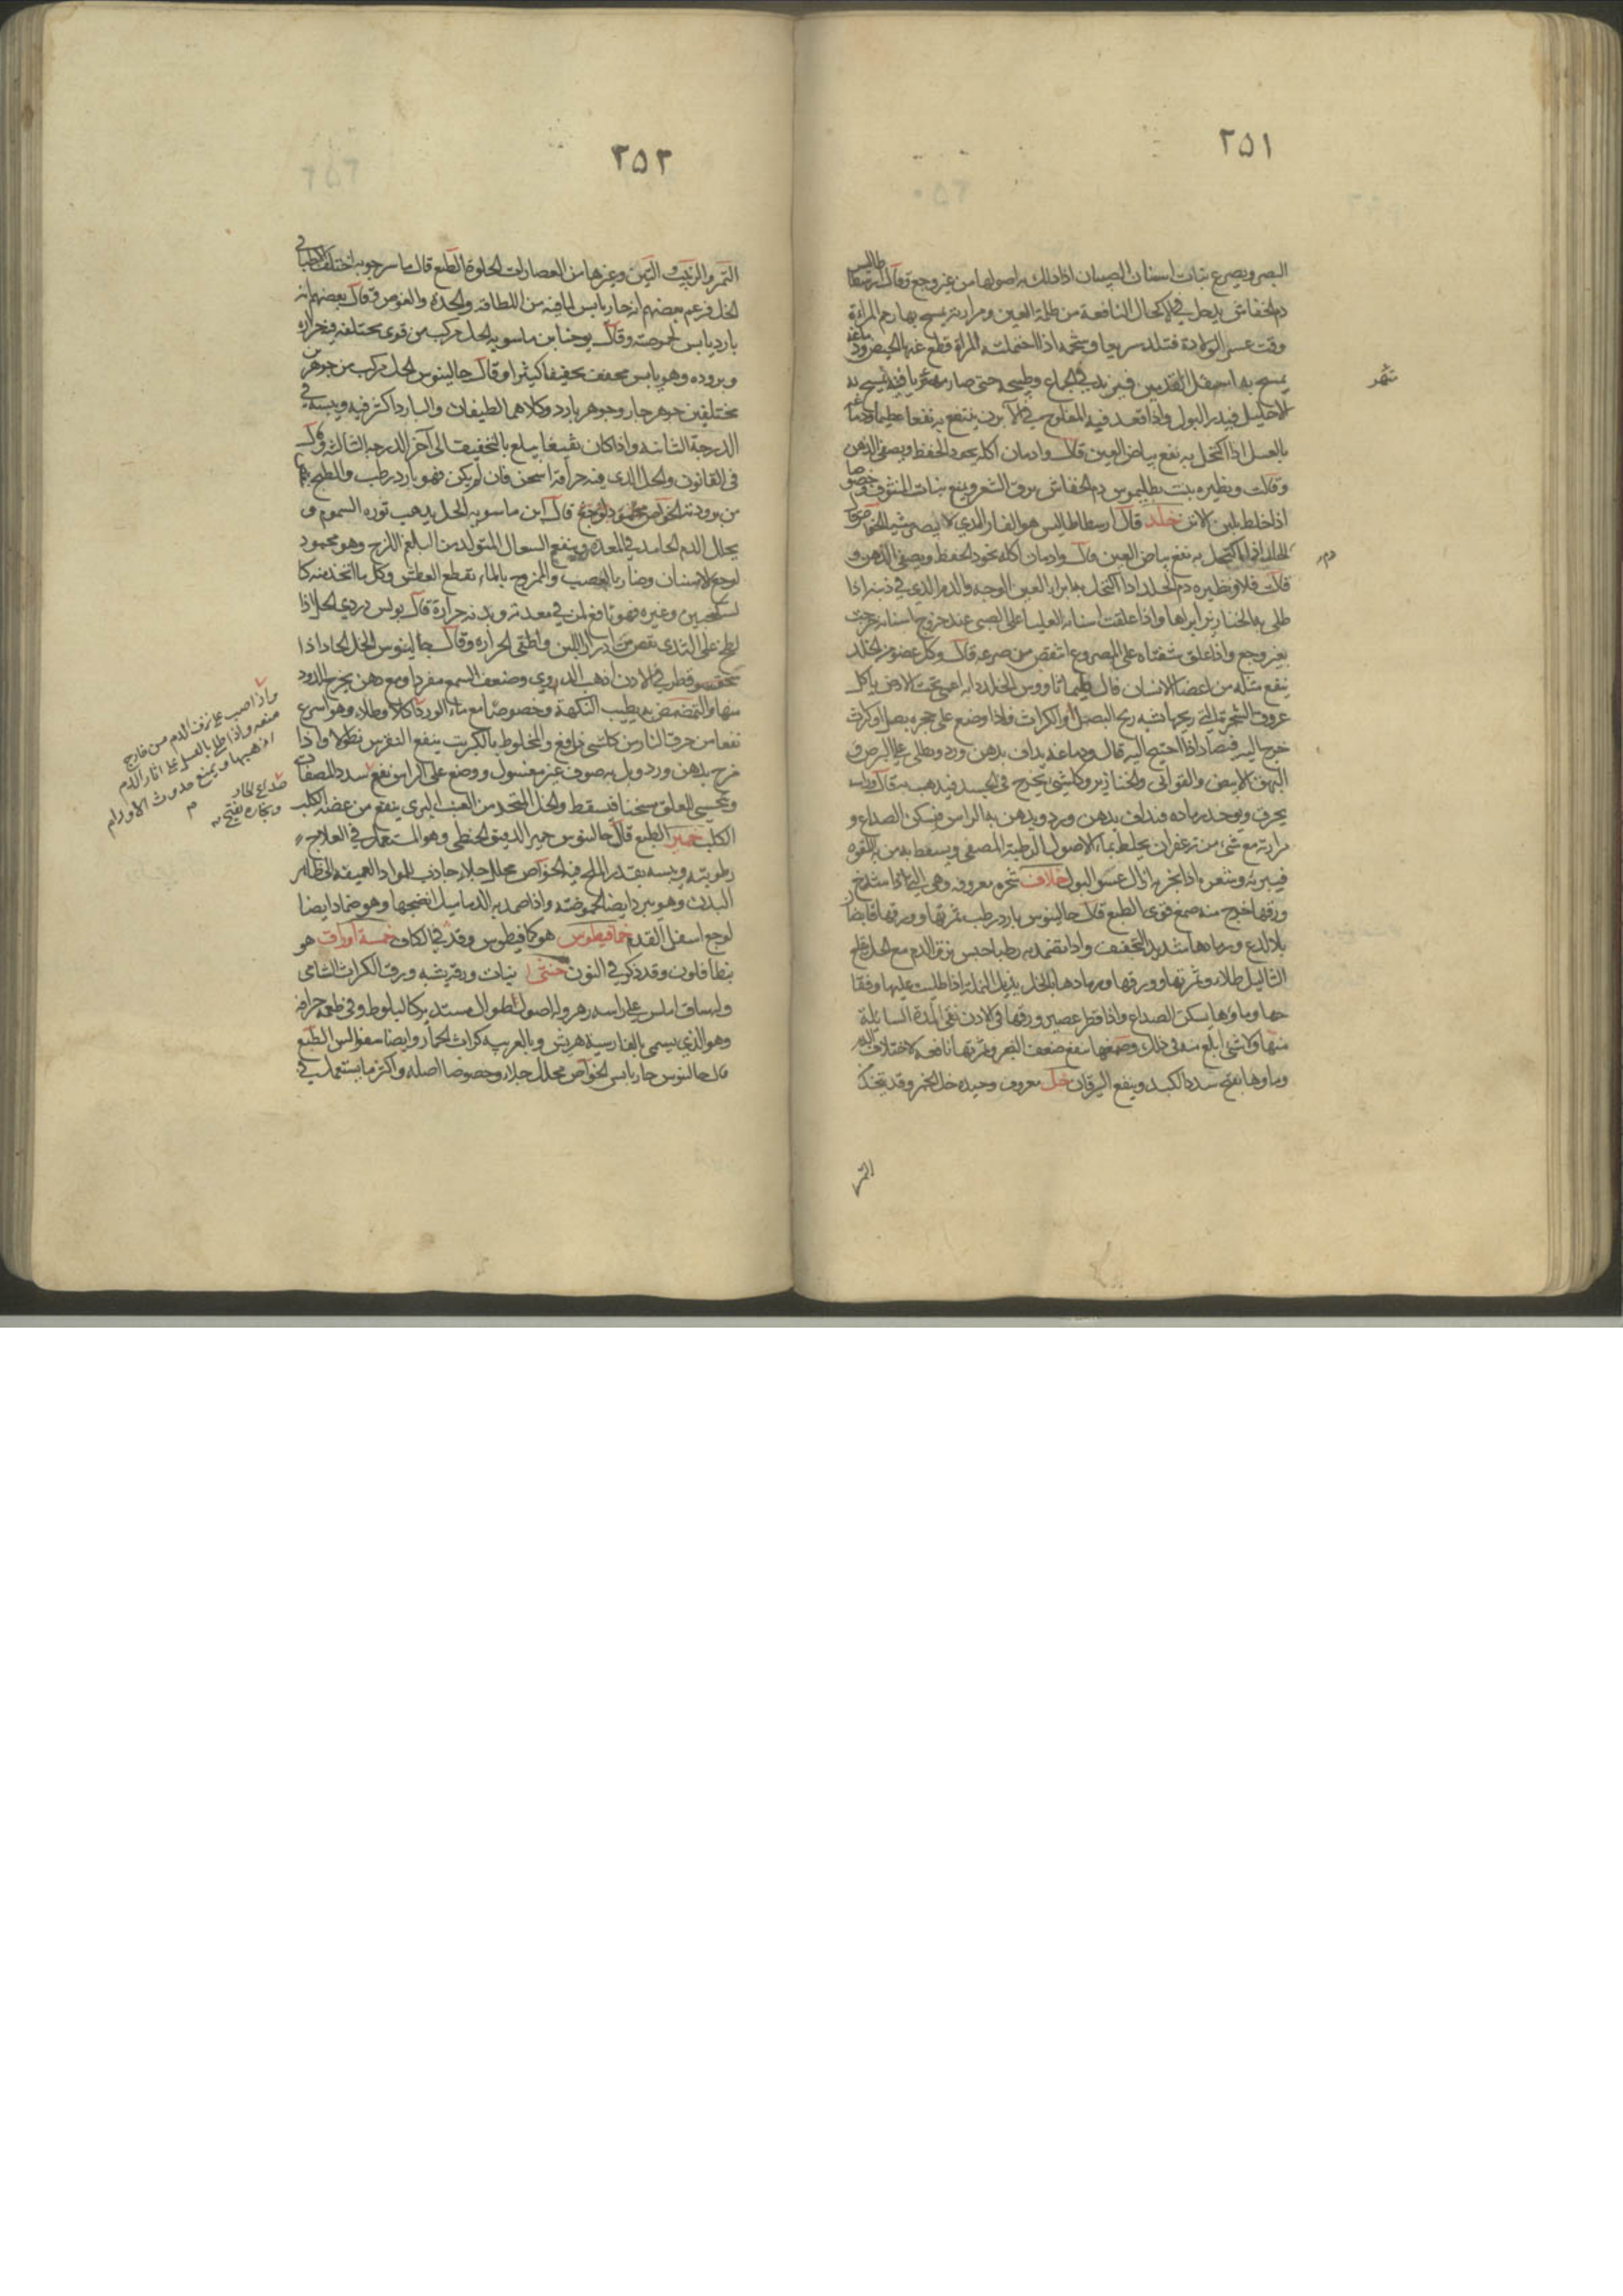 ٢٥١
البصر ويصرع نبات اسنان الصبيان اذا دلك به اصولها من غير وجع وقال ارسطاطاليس
دم الخفاش يدخل في الاكحال النافعة من ظلمة العين ومرارته يمسح بها رحم المراة
وقت عسر الولادة فتلد سريعا وشحمه اذا احتملته المراة قطع عنها الحيض ودماغه
يمسح به اسفل القدمين فيزيد في الجماع وطبيخه حتى صار يمسح به
الاحليل فيدر البول واذا قعد فيه المفلوج في الابزن ينتفع به نفعا عظيما ودماغه
بالعسل اذا اكتحل به نفع بياض العين قال وادمان اكله يجود الحفظ ويصفى الذهن
وقالت ونظيره بنت بطليموس دم الخفاش يرق الشعر ويمنع نبات المنتوف خصوصا
اذا خلط بلبن الاتن خلد قال ارسطاطاليس هو الفار الذي لا يبصر شيا الخواص
اكتحل به نفع بياض العين قال وادمان اكله يجود الحفظ ويصفى الذهن و
قالت قلاونظيره دم الخلد اذا اكتحل به ابرا العين الوجعه والدم الذي في ذنبه اذا
طلى به الخنازير ابراها واذا علقت اسنانه العليا على الصبي عند خروج اسنانه خرجت
بغير وجع واذا علق شفتاه على المصروع انتقص من صرعه قال وكل عضو من الخلد
ينفع مثله من اعضا الانسان قال الخلد دابة اعمى تحت الارض ياكل
عروق الشجرة التي ريحها شبه ريح البصل او الكراث فاذا وضع على جحره بصل او كراث
خرج اليه فيصاد اذا احتيج اليه قال ودماغه يداف بدهن ورد ويطلى على البرص و
البهق الابيض والقوابي والخنازير وكل شي يخرج في الجسد فيذهب به قال وراسه
يحرق ويوخذ رماده فيداف بدهن ورد ويدهن به الراس فيسكن الصداع و
مرارته مع شي من زعفران يخلط بماء الاصول الرطبة المصفى ويسعط به من به اللقوه
فيبريه وشعره اذا بخر به ازال عسر البول خلاف شجره معروفه وهي اذا شدخ
ورقها خرج منه صمغ قوى الطبع قال جالينوس بارد رطب ثمرتها وورقها قابضان
بلا لذع ورمادها شديد التجفيف واذا تضمد به رطبا حبس نزف الدم مع الخل قلع
الثاليل طلاء وثمرتها وورقها ورمادها بالخل يزيل النملة اذا طليت عليها وفقا
حها وماوها يسكن الصداع واذا قطر عصير ورقها في الاذن نقى المدة السايلة
منها ولا شي ابلغ منه في ذلك وصمغها ينفع ضعف البصر وثمرتها نافعة لاختلاف الدم
وماوها يفتح سدد الكبد وينفع اليرقان خل معروف وجيده خل الخمر وقد يتخذ
التمر
دم
٢٥٢
التمر والزبيب والتين وغيرها من العصارات الحلوة الطبع قال ماسرجويه اختلف الاطبا في
الخل فزعم بعضهم انه حار يابس لما فيه من اللطافة والحدة والغوص وقال بعضهم انه
بارد يابس لحموضته وقال يوحنا بن ماسويه الخل مركب من قوى مختلفه فيه حراره
وبروده وهو يابس مجفف تجفيفا كثيرا وقال جالينوس الخل مركب من جوهرين
مختلفين جوهر حار وجوهر بارد وكلاهما لطيفان والبارد اكثر فيه ويبسه في
الدرجة الثانية واذا كان ثقيفا يبلغ بالتجفيف الى آخر الدرجه الثالثة وقال
في القانون والخل الذي فيه حرافة اسخن فان لم يكن فهو بارد رطب والطبخ
من برودته الخواص قال ابن ماسويه الخل يذهب ثوره السموم و
يحلل الدم الجامد في المعدة وينفع السعال المتولد من البلغم اللزج وهو محمود
لوجع الاسنان وضار بالعصب والممزوج بالماء يقطع العطش وكل ما اتخذ منه كا
لسكنجبين وغيره فهو نافع لمن في معدته وبدنه حرارة قال بولس دردي الخل اذا
لطخ على الثدي نقص من ادرار اللبن واطفى الحراره وقال جالينوس الخل الحاد اذا
قطر في الاذن اذهب الدوي وضعف السمع مفردا ومع دهن يخرج الدود
منها والتمضمض به يطيب النكهة وخصوصا مع ماء الورد اكلا وطلاء وهو اسرع
نفعا من حرق النار من كل شي نافع والمخلوط بالكبريت ينفع النقرس نطولا واذا
مزج بدهن ورد وبل به صوف غير مغسول ووضع على الراس نفع سدد المصفاه
ويتحسى العلق سخنا فيسقط والخل المتخذ من العنب البري ينفع من عضه الكلب
الكلب خمير الطبع قال جالينوس خمير الدقيق الحنطى وهو المستعمل في العلاج
رطوبته ويبسه بقدر الملح فيه الخواص محلل جلاء جاذب المواد العميقه الى ظاهر
البدن وهو يبرد ايضا لحموضته واذا ضمد به الدماميل انضجها وهو ضمادا ايضا
لوجع اسفل القدم خمافيطوس هو كمافيطوس وقد ذكر في الكاف خمسة اوراق هو
بنطافلون وقد ذكر في النون خنثى نبات ورقه يشبه ورق الكراث الشامي
وله ساق املس على راسه زهر وله اصول طوال مستديره كالبلوط وفي طعمه حرافه
وهو الذي يسمى بالفارسية هريش وبالعربيه كراث الحمار وايضا الطبع
قال جالينوس حار يابس الخواص محلل جلاء وخصوصا اصله واكثر ما يستعمل في
واذا صب على نزف الدم من خارج
منعه واذا طلى بالعسل على اثار الدم
اذهبها ويمنع حدوث الاورام
صداع الحار
وبخاره يفتح